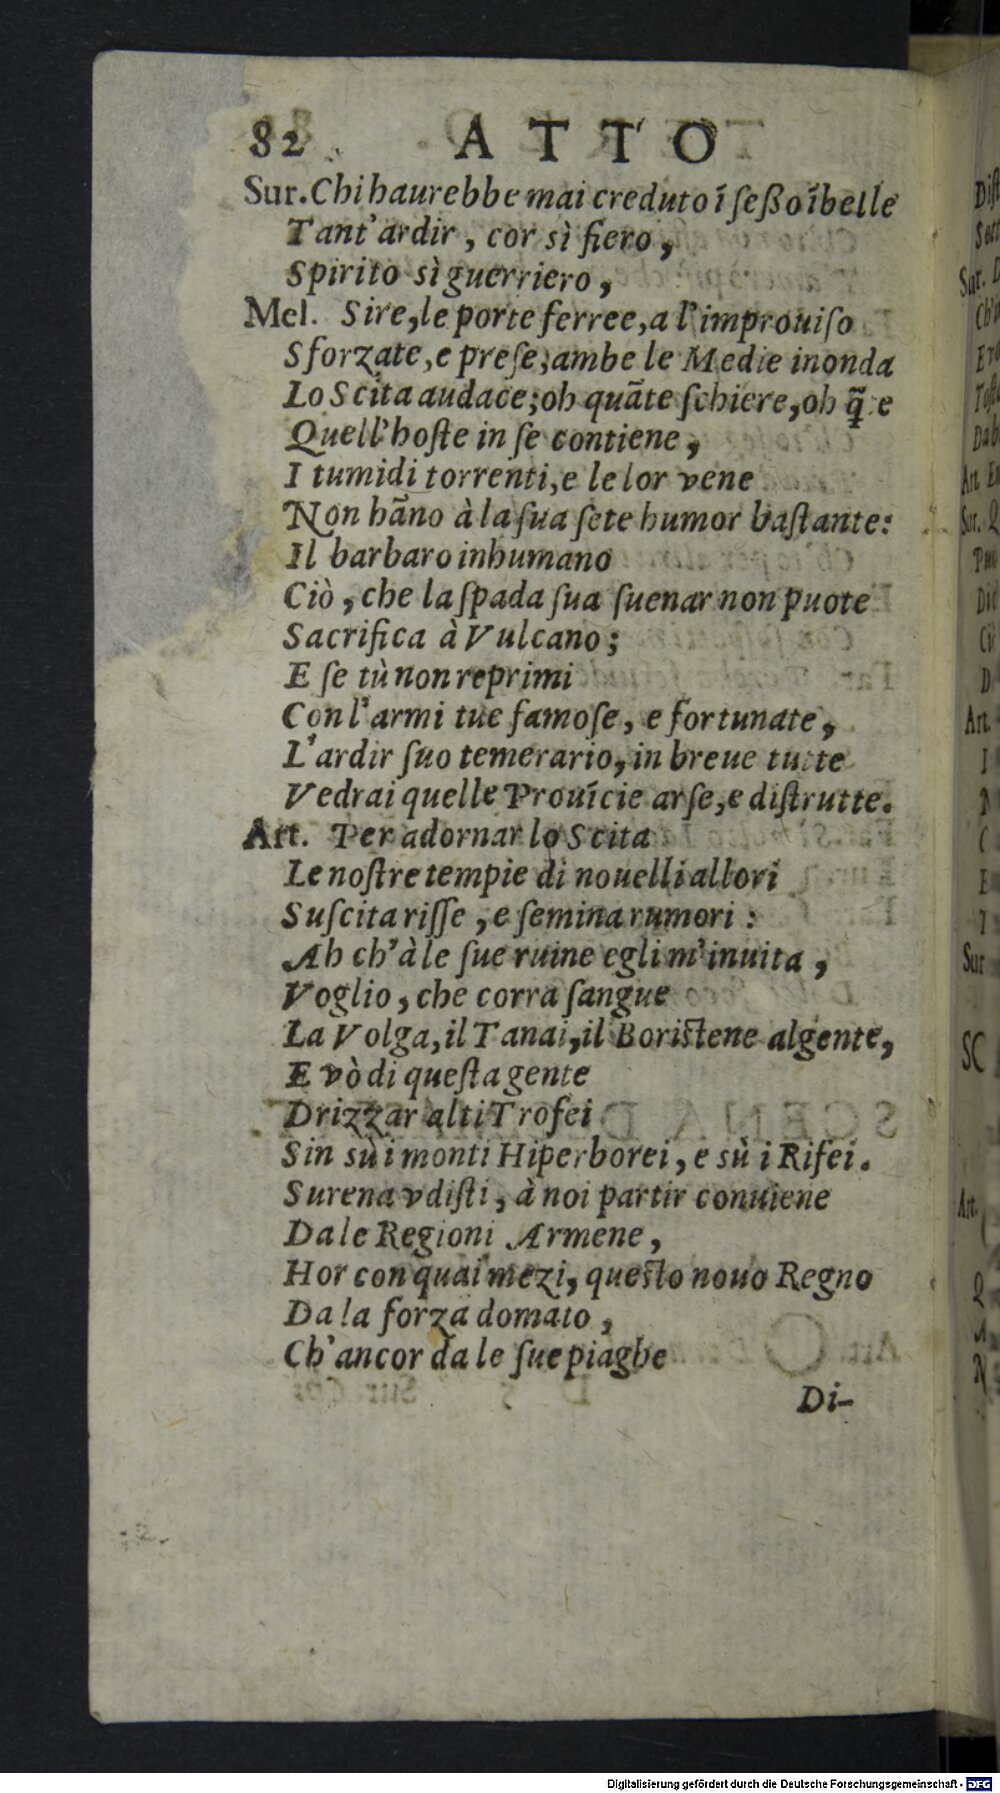 82 ATTO
Sur. Chi haurebbe mai creduto ĩ ſeßo ĩbelle
Tant'ardir, cor sì fiero,
Spirito sì guerriero,
Mel. Sire, le porte ferree, a l'improuiſo
Sforzate, e preſe; ambe le Medie inonda
Lo Scita audace; oh quãte ſchiere, oh q̃te
Quell'hoſte in ſe contiene,
I tumidi torrenti, e le lor vene
Non hãno à la ſua ſete humor baſtante:
Il barbaro inhumano
Ciò, che la ſpada ſua ſuenar non puote
Sacrifica à Vulcano;
E ſe tù non reprimi
Con l'armi tue famoſe, e fortunate,
L'ardir ſuo temerario, in breue tutte
Vedrai quelle Prouĩcie arſe, e diſtrutte.
Art. Per adornar lo Scita
Le noſtre tempie di nouelli allori
Suſcita riſſe, e ſemina rumori:
Ah ch'à le ſue ruine egli m'inuita,
Voglio, che corra ſangue
La Volga, il Tanai, il Boriſtene algente,
E vò di queſta gente
Drizzar alti Trofei
Sin sù i monti Hiperborei, e sù i Rifei.
Surena vdiſti, à noi partir conuiene
Da le Regioni Armene,
Hor con quai mezi, queſto nouo Regno
Da la forza domato,
Ch'ancor da le ſue piaghe
Di-
Digitalisierung gefördert durch die Deutsche Forschungsgemeinschaft - DFG